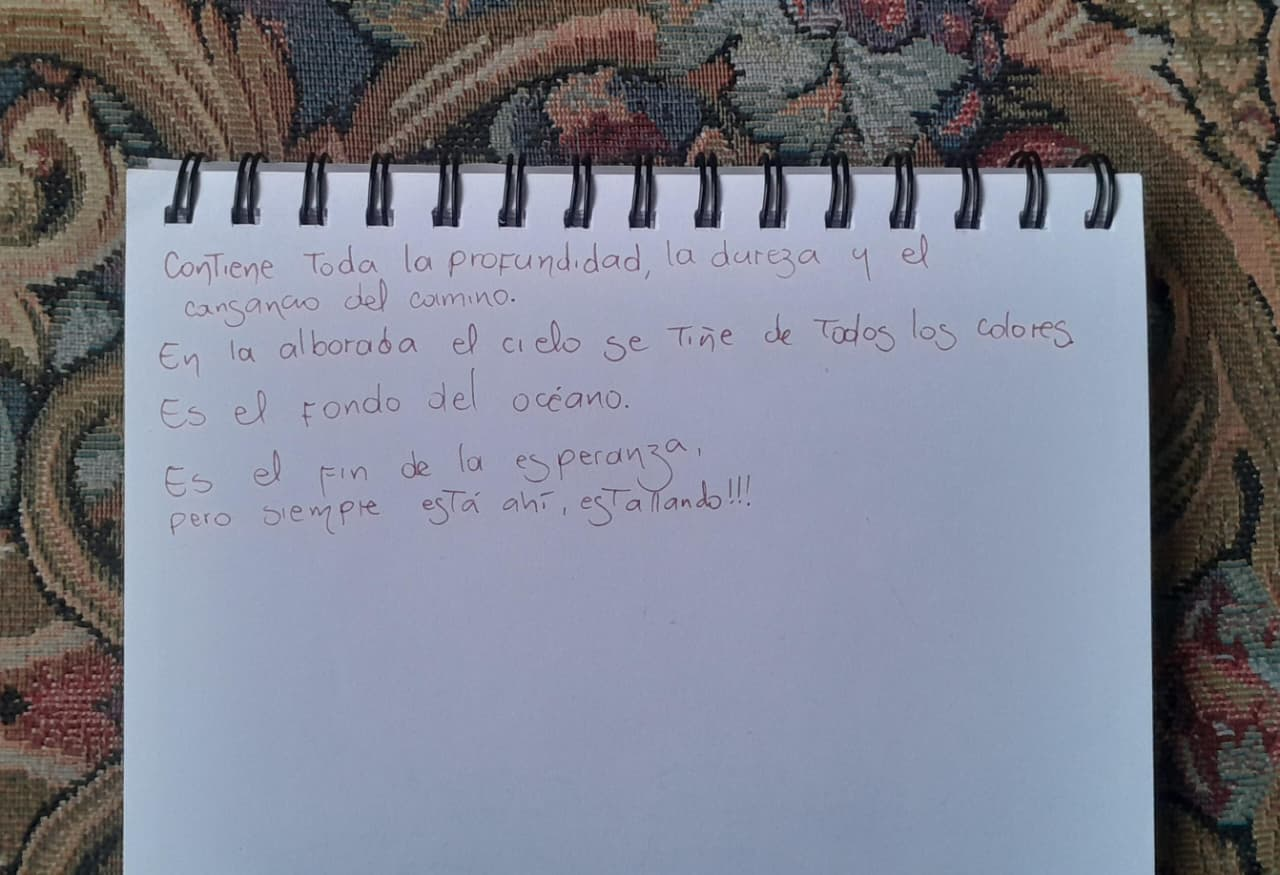 Contiene toda la profundidad, la dureza y el
cansancio del camino.
En la alborada el cielo se tiñe de todos los colores
Es el fondo del océano.
Es el fin de la esperanza,
pero siempre está ahí, estallando!!!